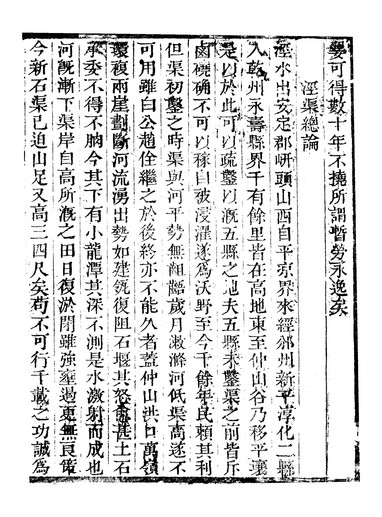 要可得數十年不撓所謂暫勞永逸矣
涇渠總論
涇水出安定郡岍頭山西自平凉界來經邠州新平淳化二縣
入乾州永壽縣界千有餘里皆在高地東至仲山谷乃移平壤
是以於此可以疏鑿以溉五縣之地夫五縣未鑿渠之前皆斥
鹵磽确不可以稼自被浸灌遂爲沃野至今千餘年民賴其利
但渠初鑿之時渠與河平勢無齟齬歲月漱滌河低渠高遂不
可用雖白公趙佺繼之於後終亦不能久者蓋仲山洪口萬嶺
環複兩崖劃斷河流湧出勢如建瓴復阻石堰其怒甚土石
承委不得不朒今其下有小龍潭其深不測是水激射而成也
河旣漸下渠岸自高所漑之田日復淤閼雖強壅遏更無良策
今新石渠已迫山足又高三四尺矣苟不可行千載之功誠爲